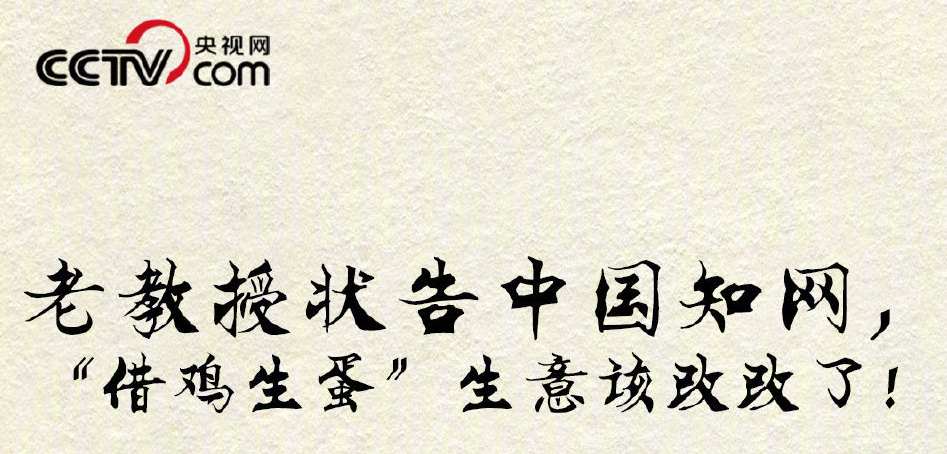 CCTV 央视网
com
老教授状告中国知网，
“借鸡生蛋”生意该改改了！